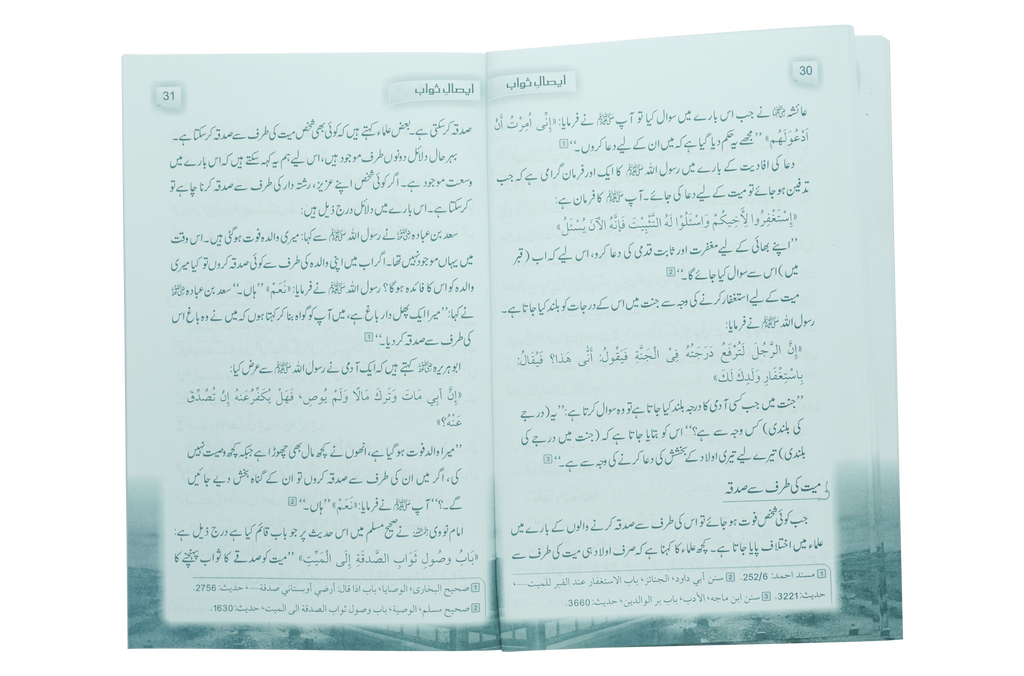 30
ایصالِ ثواب
عائشہ رضی اللہ عنہا نے جب اس بارے میں سوال کیا تو آپ ﷺ نے فرمایا: «إِنِّى أُمِرْتُ أَنْ
أَدْعُوَلَهُم» ’’مجھے یہ حکم دیا گیا ہے کہ میں ان کے لیے دعا کروں۔‘‘ 1
دعا کی افادیت کے بارے میں رسول اللہ ﷺ کا ایک اور فرمان گرامی ہے کہ جب
تدفین ہو جائے تو میت کے لیے دعا کی جائے۔ آپ ﷺ کا فرمان ہے:
«إِسْتَغْفِرُوا لِأَخِيكُمْ وَاسْئَلُوْا لَهُ التَّثْبِيْتَ فَإِنَّهُ الآنَ يُسْئَلُ»
’’اپنے بھائی کے لیے مغفرت اور ثابت قدمی کی دعا کرو، اس لیے کہ اب (قبر
میں) اس سے سوال کیا جائے گا۔‘‘ 2
میت کے لیے استغفار کرنے کی وجہ سے جنت میں اس کے درجات کو بلند کیا جاتا ہے۔
رسول اللہ ﷺ نے فرمایا:
«إِنَّ الرَّجُلَ لَتُرْفَعُ دَرَجَتُهُ فِى الْجَنَّةِ فَيَقُولُ: أَنَّى هَذَا؟ فَيُقَالُ:
بِاسْتِغْفَارِ وَلَدِكَ لَكَ»
’’جنت میں جب کسی آدمی کا درجہ بلند کیا جاتا ہے تو وہ سوال کرتا ہے: ’’یہ (درجے
کی بلندی) کس وجہ سے ہے؟‘‘ اس کو بتایا جاتا ہے کہ (جنت میں درجے کی
بلندی) تیرے لیے تیری اولاد کے بخشش کی دعا کرنے کی وجہ سے ہے۔‘‘ 3
میت کی طرف سے صدقہ
جب کوئی شخص فوت ہو جائے تو اس کی طرف سے صدقہ کرنے والوں کے بارے میں
علماء میں اختلاف پایا جاتا ہے۔ کچھ علماء کا کہنا ہے کہ صرف اولاد ہی میت کی طرف سے
1 مسند احمد: 252/6. 2 سنن أبي داود، الجنائز، باب الاستغفار عند القبر للميت....،
حديث: 3221. 3 سنن ابن ماجه، الأدب، باب بر الوالدين، حديث: 3660.
31
ایصالِ ثواب
صدقہ کر سکتی ہے۔ بعض علماء کہتے ہیں کہ کوئی بھی شخص میت کی طرف سے صدقہ کر سکتا ہے۔
بہر حال دلائل دونوں طرف موجود ہیں، اس لیے ہم یہ کہہ سکتے ہیں کہ اس بارے میں
وسعت موجود ہے۔ اگر کوئی شخص اپنے عزیز، رشتہ دار کی طرف سے صدقہ کرنا چاہے تو
کر سکتا ہے۔ اس بارے میں دلائل درج ذیل ہیں:
سعد بن عبادہ رضی اللہ عنہ نے رسول اللہ ﷺ سے کہا: میری والدہ فوت ہو گئی ہیں۔ اس وقت
میں یہاں موجود نہیں تھا۔ اگر اب میں اپنی والدہ کی طرف سے کوئی صدقہ کروں تو کیا میری
والدہ کو اس کا فائدہ ہو گا؟ رسول اللہ ﷺ نے فرمایا: «نَعَمْ» ’’ہاں۔‘‘ سعد بن عبادہ رضی اللہ عنہ
نے کہا: ’’میرا ایک پھل دار باغ ہے، میں آپ کو گواہ بنا کر کہتا ہوں کہ میں نے وہ باغ اس
کی طرف سے صدقہ کر دیا۔‘‘ 1
ابو ہریرہ رضی اللہ عنہ کہتے ہیں کہ ایک آدمی نے رسول اللہ ﷺ سے عرض کیا:
«إِنَّ أَبِي مَاتَ وَتَرَكَ مَالًا وَلَمْ يُوصِ، فَهَلْ يُكَفَّرُعَنهُ إِنْ تُصُدِّقَ
عَنْهُ؟»
’’میرا والد فوت ہو گیا ہے، انھوں نے کچھ مال بھی چھوڑا ہے جبکہ کچھ وصیت نہیں
کی، اگر میں ان کی طرف سے صدقہ کروں تو ان کے گناہ بخش دیے جائیں
گے۔؟‘‘ آپ ﷺ نے فرمایا: «نَعَمْ» ’’ہاں۔‘‘ 2
امام نووی رحمہ اللہ نے صحیح مسلم میں اس حدیث پر جو باب قائم کیا ہے درج ذیل ہے:
«بَابُ وصُولِ ثَوَابِ الصَّدَقَةِ إِلَى الْمَيِّتِ» ’’میت کو صدقے کا ثواب پہنچنے کا
1 صحيح البخارى، الوصايا، باب اذا قال: أرضي أوبستاني صدقة....، حديث: 2756.
2 صحيح مسلم، الوصية، باب وصول ثواب الصدقة الى الميت، حديث: 1630.